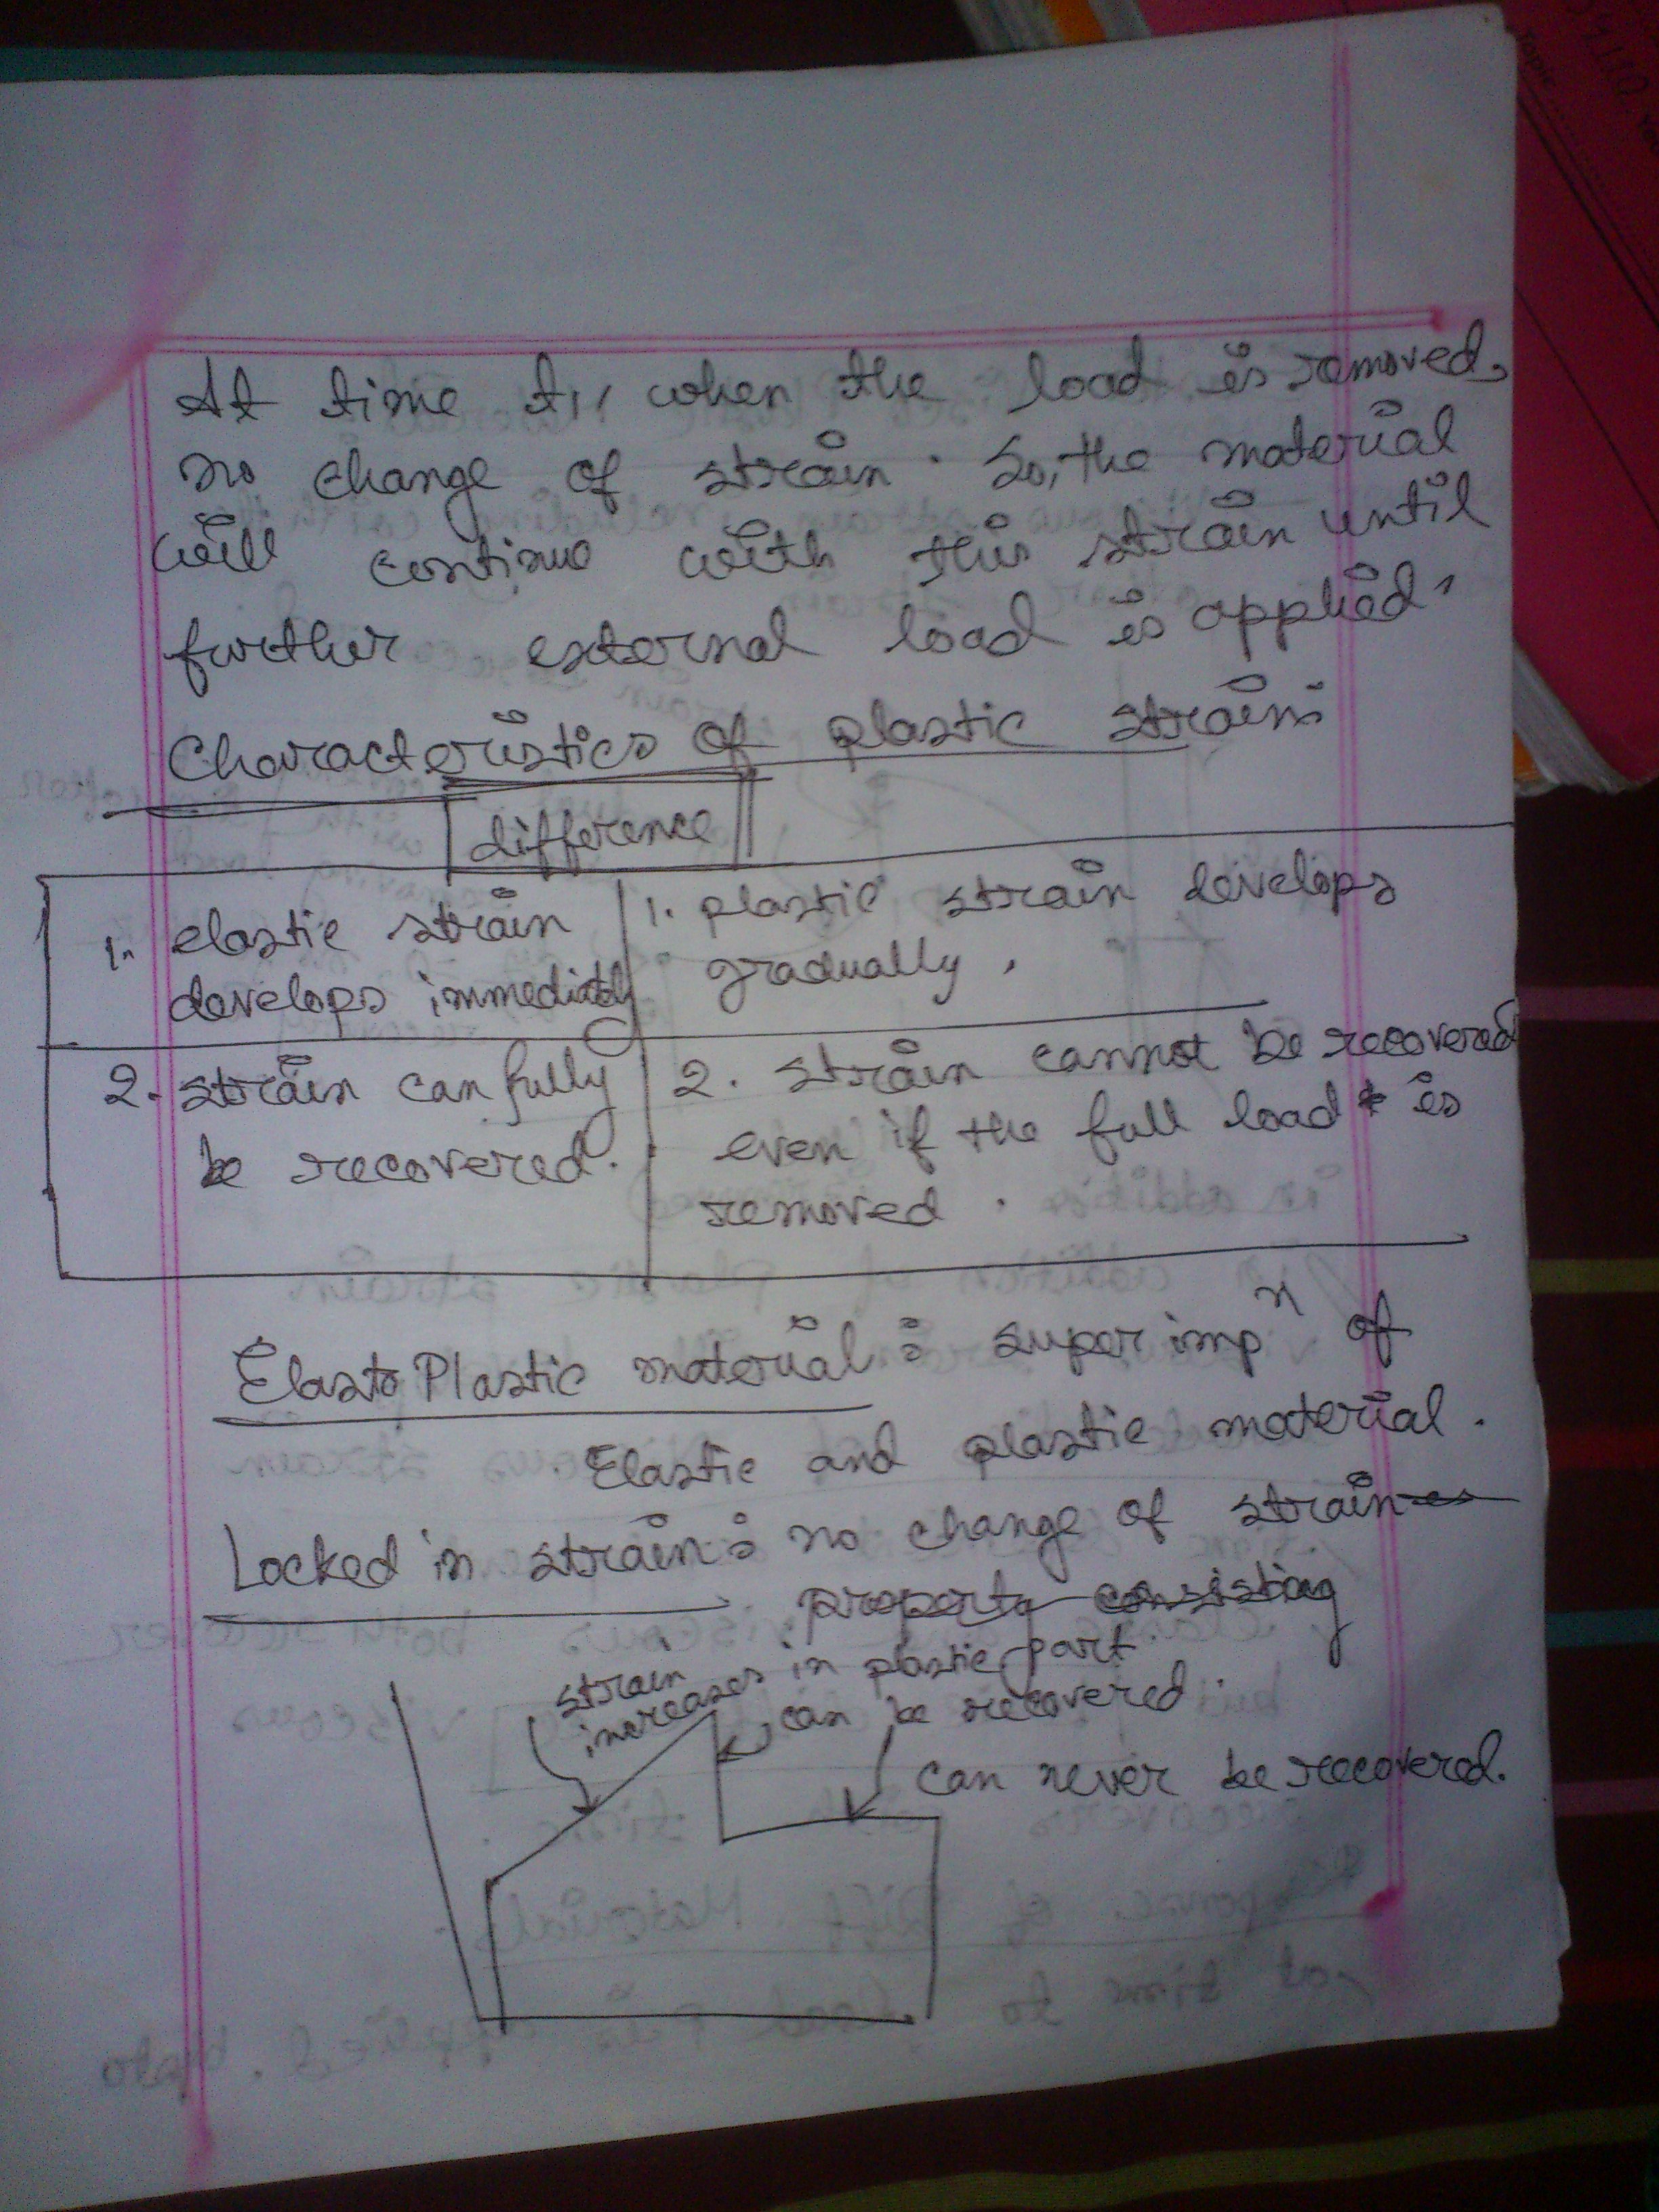 At time t1, when the load is removed,
no change of strain. So, the material
will continue with this strain until
further external load is applied.
Characteristics of plastic strain:
difference
1. elastic strain
develops immediatly
1. plastic strain develops
gradually.
2. strain can fully
be recovered.
2. strain cannot be recovered
even if the full load is
removed.
Elasto Plastic material: superimpⁿ of
Elastic and plastic material.
Locked in strain: no change of strain
property consisting
strain
increases in plastic part
can be recovered.
can never be recovered.